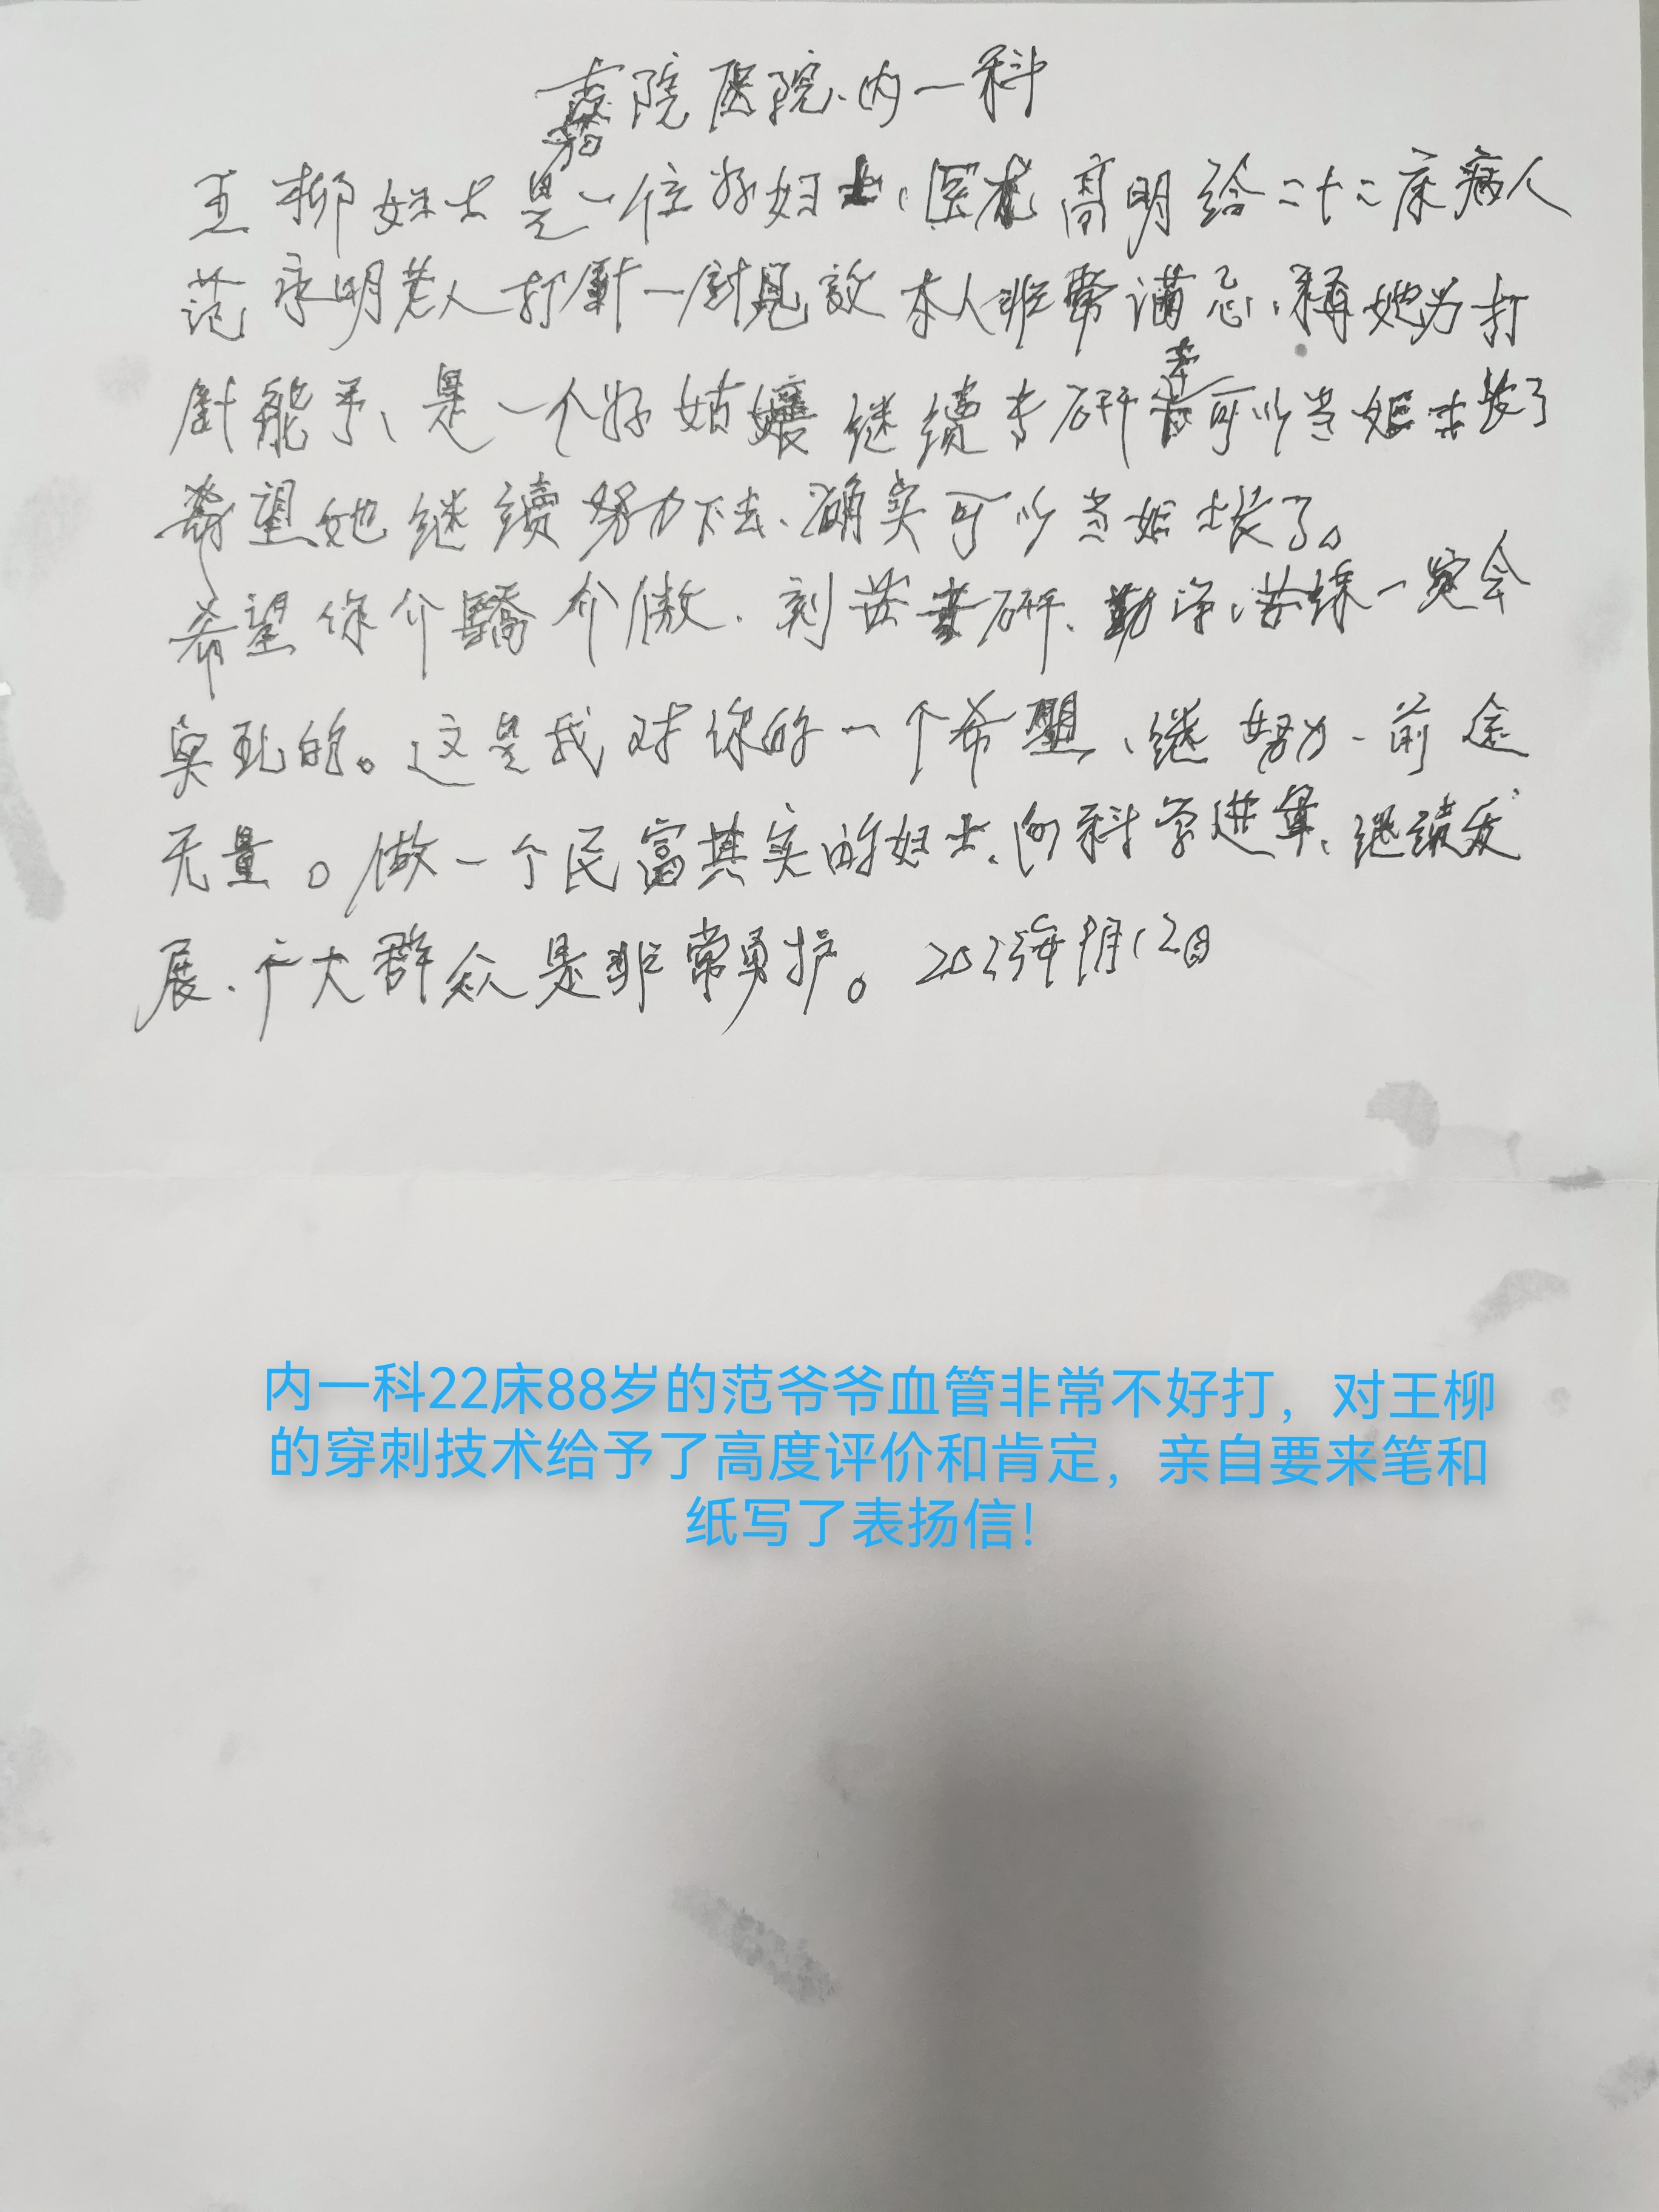 院医院、内一科
王柳妇士是一位好妇士、医术高明给二十二床病人
范永明老人打針一針見效本人非常满意、稱她为打
針能手、是一个好姑孃继续专研可以当妇士长了
希望她继续努力下去、确实可以当妇士长了。
希望你介驕介傲、刻苦专研、勤学、苦练一定会
的。这是我对你的一个希望、继努力、前途
无量。做一个民富其实的妇士、向科学进军、继续发
展、广大群众是非常勇护。
内一科22床88岁的范爷爷血管非常不好打，对王柳
的穿刺技术给予了高度评价和肯定，亲自要来笔和
纸写了表扬信！